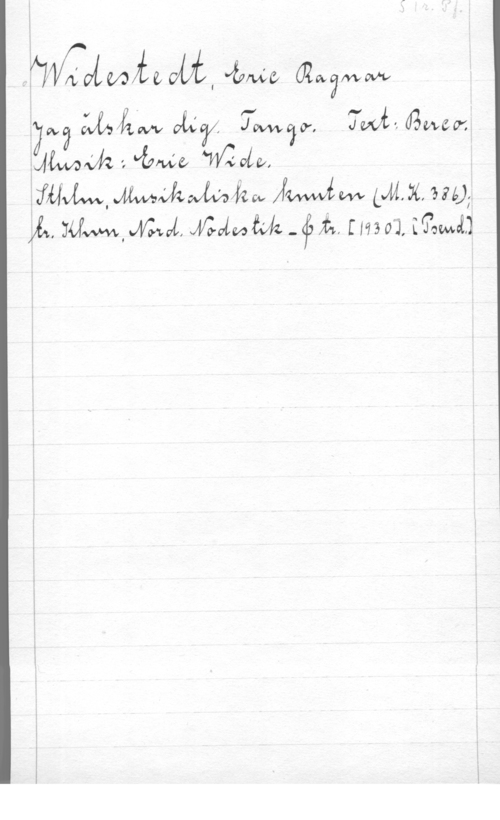 S 1 r. Pf.
Widestedt, Eric Ragnar
Jag älskar dig. Tango. Text: Berco.
Musik: Eric Wide.
Sthlm, Musikaliska knuten (M.K. 386);
tr. Khvn, Nord. Nodestik- & tr. [1930]. [Pseud.]